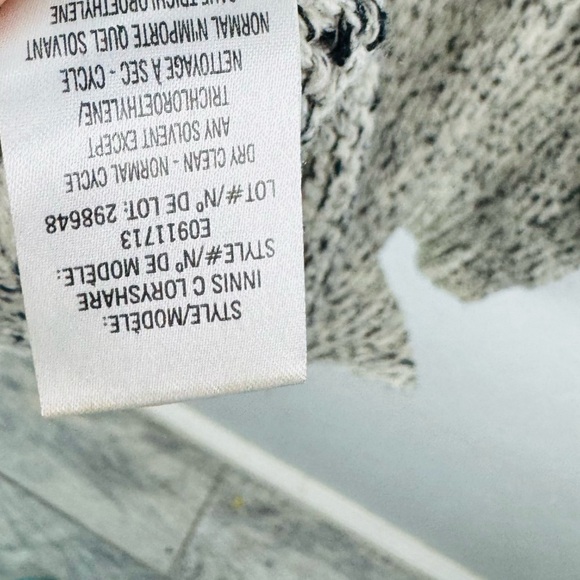 STYLE/MODÈLE:
INNIS C LORYSHARE
STYLE#/Nº DE MODÈLE:
E0911713
LOT#/Nº DE LOT: 298648
DRY CLEAN - NORMAL CYCLE
ANY SOLVENT EXCEPT
TRICHLOROETHYLENE/
NETTOYAGE À SEC - CYCLE
NORMAL N'IMPORTE QUEL SOLVANT
TRICHLOROETHYLENE